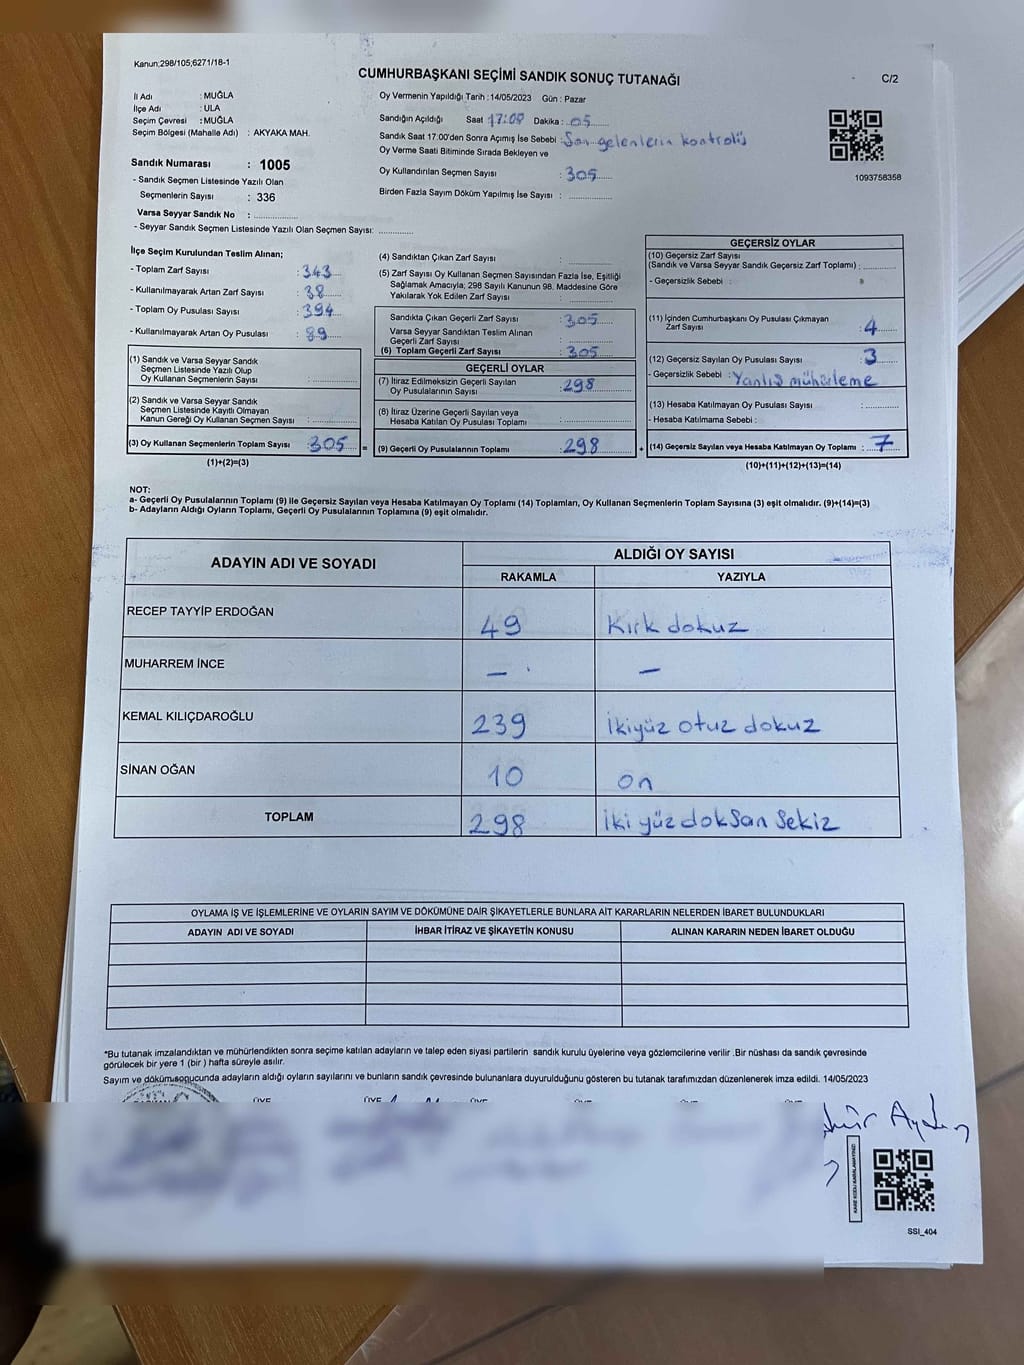 Kanun:298/105,6271/18-1
CUMHURBAŞKANI SEÇİMİ SANDIK SONUÇ TUTANAĞI
C/2
İl Adı : MUĞLA
İlçe Adı : ULA
Seçim Çevresi : MUĞLA
Seçim Bölgesi (Mahalle Adı) : AKYAKA MAH.
Sandık Numarası : 1005
- Sandık Seçmen Listesinde Yazılı Olan
Seçmenlerin Sayısı : 336
Varsa Seyyar Sandık No :
- Seyyar Sandık Seçmen Listesinde Yazılı Olan Seçmen Sayısı:
Oy Vermenin Yapıldığı Tarih :14/05/2023 Gün : Pazar
Sandığın Açıldığı Saat 17:00 Dakika : 05
Sandık Saat 17:00'den Sonra Açımış İse Sebebi : Son gelenlerin kontrolü
Oy Verme Saati Bitiminde Sırada Bekleyen ve
Oy Kullandırılan Seçmen Sayısı : 305
Birden Fazla Sayım Döküm Yapılmış İse Sayısı :
1093758358
İlçe Seçim Kurulundan Teslim Alınan;
- Toplam Zarf Sayısı : 343
- Kullanılmayarak Artan Zarf Sayısı : 38
- Toplam Oy Pusulası Sayısı : 394
- Kullanılmayarak Artan Oy Pusulası : 89
(1) Sandık ve Varsa Seyyar Sandık
Seçmen Listesinde Yazılı Olup
Oy Kullanan Seçmenlerin Sayısı :
(2) Sandık ve Varsa Seyyar Sandık
Seçmen Listesinde Kayıtlı Olmayan
Kanun Gereği Oy Kullanan Seçmen Sayısı :
(3) Oy Kullanan Seçmenlerin Toplam Sayısı : 305 =
(1)+(2)=(3)
(4) Sandıktan Çıkan Zarf Sayısı :
(5) Zarf Sayısı Oy Kullanan Seçmen Sayısından Fazla İse, Eşitliği
Sağlamak Amacıyla; 298 Sayılı Kanunun 98. Maddesine Göre
Yakılarak Yok Edilen Zarf Sayısı :
Sandıkta Çıkan Geçerli Zarf Sayısı : 305
Varsa Seyyar Sandıktan Teslim Alınan
Geçerli Zarf Sayısı :
(6) Toplam Geçerli Zarf Sayısı : 305
GEÇERLİ OYLAR
(7) İtiraz Edilmeksizin Geçerli Sayılan
Oy Pusulalarının Sayısı : 298
(8) İtiraz Üzerine Geçerli Sayılan veya
Hesaba Katılan Oy Pusulası Toplamı :
(9) Geçerli Oy Pusulalarının Toplamı : 298 +
GEÇERSİZ OYLAR
(10) Geçersiz Zarf Sayısı
(Sandık ve Varsa Seyyar Sandık Geçersiz Zarf Toplamı) :
- Geçersizlik Sebebi :
(11) İçinden Cumhurbaşkanı Oy Pusulası Çıkmayan
Zarf Sayısı : 4
(12) Geçersiz Sayılan Oy Pusulası Sayısı : 3
- Geçersizlik Sebebi : Yanlış mühürleme
(13) Hesaba Katılmayan Oy Pusulası Sayısı :
- Hesaba Katılmama Sebebi :
(14) Geçersiz Sayılan veya Hesaba Katılmayan Oy Toplamı : 7
(10)+(11)+(12)+(13)=(14)
NOT:
a- Geçerli Oy Pusulalarının Toplamı (9) ile Geçersiz Sayılan veya Hesaba Katılmayan Oy Toplamı (14) Toplamları, Oy Kullanan Seçmenlerin Toplam Sayısına (3) eşit olmalıdır. (9)+(14)=(3)
b- Adayların Aldığı Oyların Toplamı, Geçerli Oy Pusulalarının Toplamına (9) eşit olmalıdır.
ADAYIN ADI VE SOYADI
ALDIĞI OY SAYISI
RAKAMLA YAZIYLA
RECEP TAYYİP ERDOĞAN 49 Kırk dokuz
MUHARREM İNCE - -
KEMAL KILIÇDAROĞLU 239 İkiyüz otuz dokuz
SİNAN OĞAN 10 on
TOPLAM 298 iki yüz doksan sekiz
OYLAMA İŞ VE İŞLEMLERİNE VE OYLARIN SAYIM VE DÖKÜMÜNE DAİR ŞİKAYETLERLE BUNLARA AİT KARARLARIN NELERDEN İBARET BULUNDUKLARI
ADAYIN ADI VE SOYADI İHBAR İTİRAZ VE ŞİKAYETİN KONUSU ALINAN KARARIN NEDEN İBARET OLDUĞU
*Bu tutanak imzalandıktan ve mühürlendikten sonra seçime katılan adayların ve talep eden siyasi partilerin sandık kurulu üyelerine veya gözlemcilerine verilir .Bir nüshası da sandık çevresinde
görülecek bir yere 1 (bir ) hafta süreyle asılır.
Sayım ve döküm sonucunda adayların aldığı oyların sayılarını ve bunların sandık çevresinde bulunanlara duyurulduğunu gösteren bu tutanak tarafımızdan düzenlenerek imza edildi. 14/05/2023
ÜYE ÜYE ÜYE
KARE KODU KARALAMAYINIZ!
SSI_404